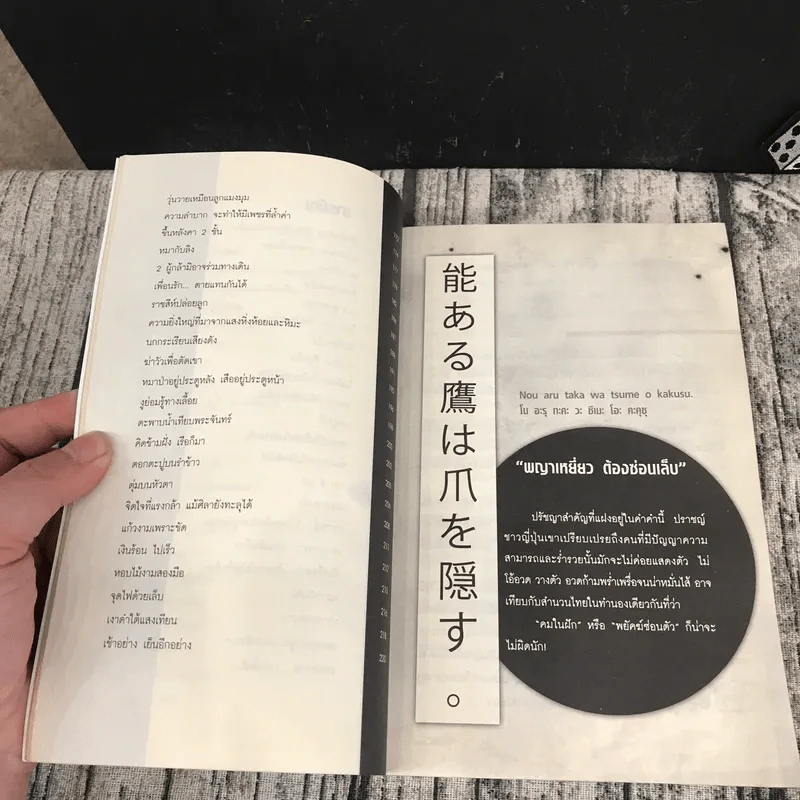 วุ่นวายเหมือนลูกแมงมุม
ความลำบาก จะทำให้มีเพชรที่ล้ำค่า
ขึ้นหลังคา 2 ชั้น
หมากับลิง
2 ผู้กล้ามิอาจร่วมทางเดิน
เพื่อนรัก... ตายแทนกันได้
ราชสีห์ปล่อยลูก
ความยิ่งใหญ่ที่มาจากแสงหิ่งห้อยและหิมะ
นกกระเรียนเสียงดัง
ฆ่าวัวเพื่อดัดเขา
หมาป่าอยู่ประตูหลัง เสืออยู่ประตูหน้า
งูย่อมรู้ทางเลื้อย
ตะพาบน้ำเทียบพระจันทร์
คิดข้ามฝั่ง เรือก็มา
ตอกตะปูบนรำข้าว
ตุ่มบนหัวตา
จิตใจที่แรงกล้า แม้ศิลายังทะลุได้
แก้วงามเพราะขัด
เงินร้อน ไปเร็ว
หอบไม้งามสองมือ
จุดไฟด้วยเล็บ
เงาดำใต้แสงเทียน
เช้าอย่าง เย็นอีกอย่าง
200
201
203
205
208
209
211
212
215
216
218
220
能ある鷹は爪を隠す。
Nou aru taka wa tsume o kakusu.
โน อะรุ ทะคะ วะ ซึเมะ โอะ คะคุซุ
“พญาเหยี่ยว ต้องซ่อนเล็บ”
ปรัชญาสำคัญที่แฝงอยู่ในคำคำนี้ ปราชญ์
ชาวญี่ปุ่นเขาเปรียบเปรยถึงคนที่มีปัญญาความ
สามารถและร่ำรวยนั้นมักจะไม่ค่อยแสดงตัว ไม่
โอ้อวด วางตัว อวดก้ามพร่ำเพรื่อจนน่าหมั่นไส้ อาจ
เทียบกับสำนวนไทยในทำนองเดียวกันที่ว่า
“คมในฝัก” หรือ “พยัคฆ์ซ่อนตัว” ก็น่าจะ
ไม่ผิดนัก!